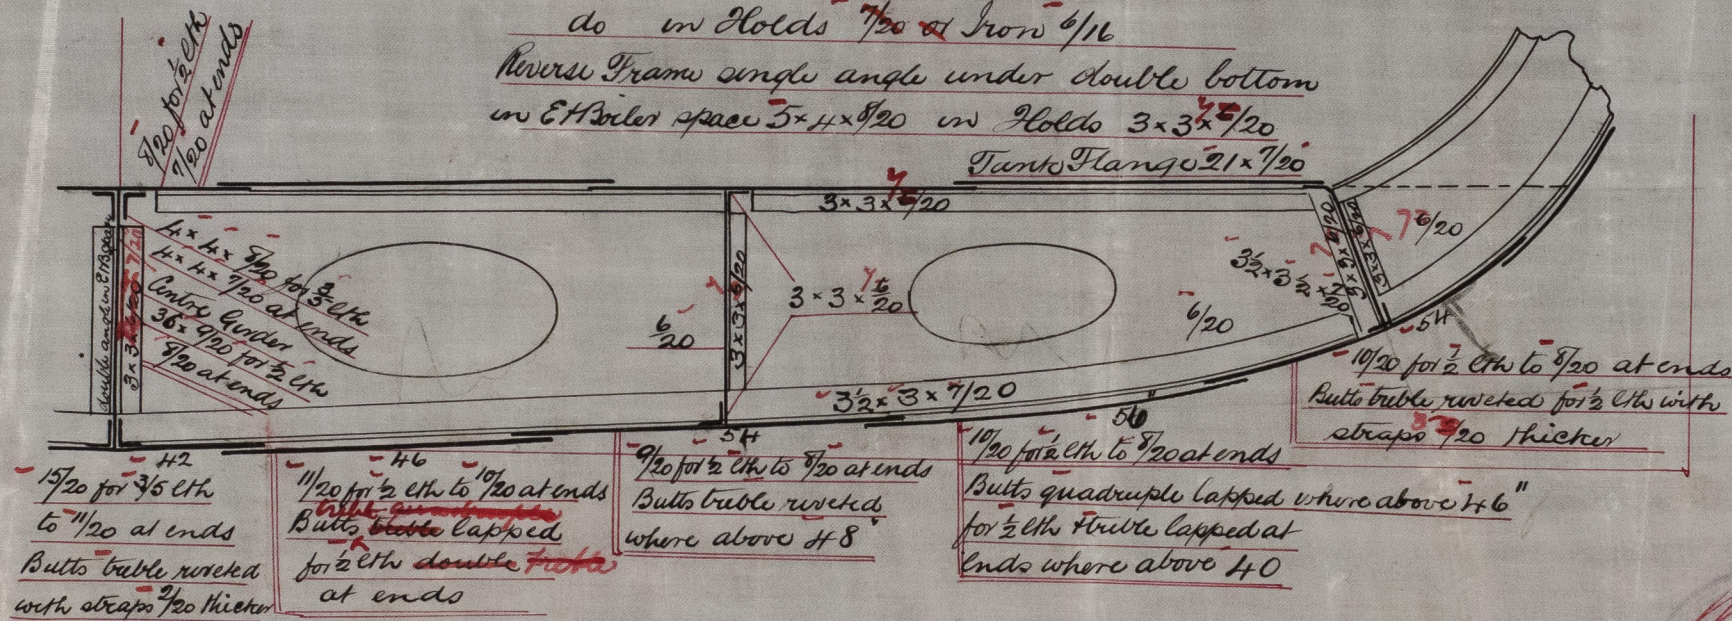 do in Holds 7/20 or Iron 6/16
Reverse Frame single angle under double bottom
in E & Boiler space 5 × 4 × 8/20 in Holds 3 × 3 × 7/20
Tank Flange 21 × 7/20
8/20 for ½ lth
7/20 at ends
double angle in E & B space
3 × 3 × 7/20
4 × 4 × 8/20 for 3/5 lth
4 × 4 × 7/20 at ends
Centre Girder
36 × 9/20 for ½ lth
8/20 at ends
6/20
3 × 3 × 6/20
3 × 3 × 6/20
3 × 3 × 6/20
3½ × 3 × 7/20
6/20
3½ × 3½ × 7/20
3 × 3 × 6/20
3 × 3 × 6/20
6/20
42
15/20 for 3/5 lth
to 11/20 at ends
Butts treble riveted
with straps 2/20 thicker
46
11/20 for ½ lth to 10/20 at ends
treble quadruple
Butts treble lapped
for ½ lth double treble
at ends
54
9/20 for ½ lth to 8/20 at ends
Butts treble riveted
where above 48"
56"
10/20 for ½ lth to 8/20 at ends
Butts quadruple lapped where above 46"
for ½ lth & treble lapped at
ends where above 40
54
10/20 for ½ lth to 8/20 at ends
Butts treble riveted for ½ lth with
straps /20 thicker